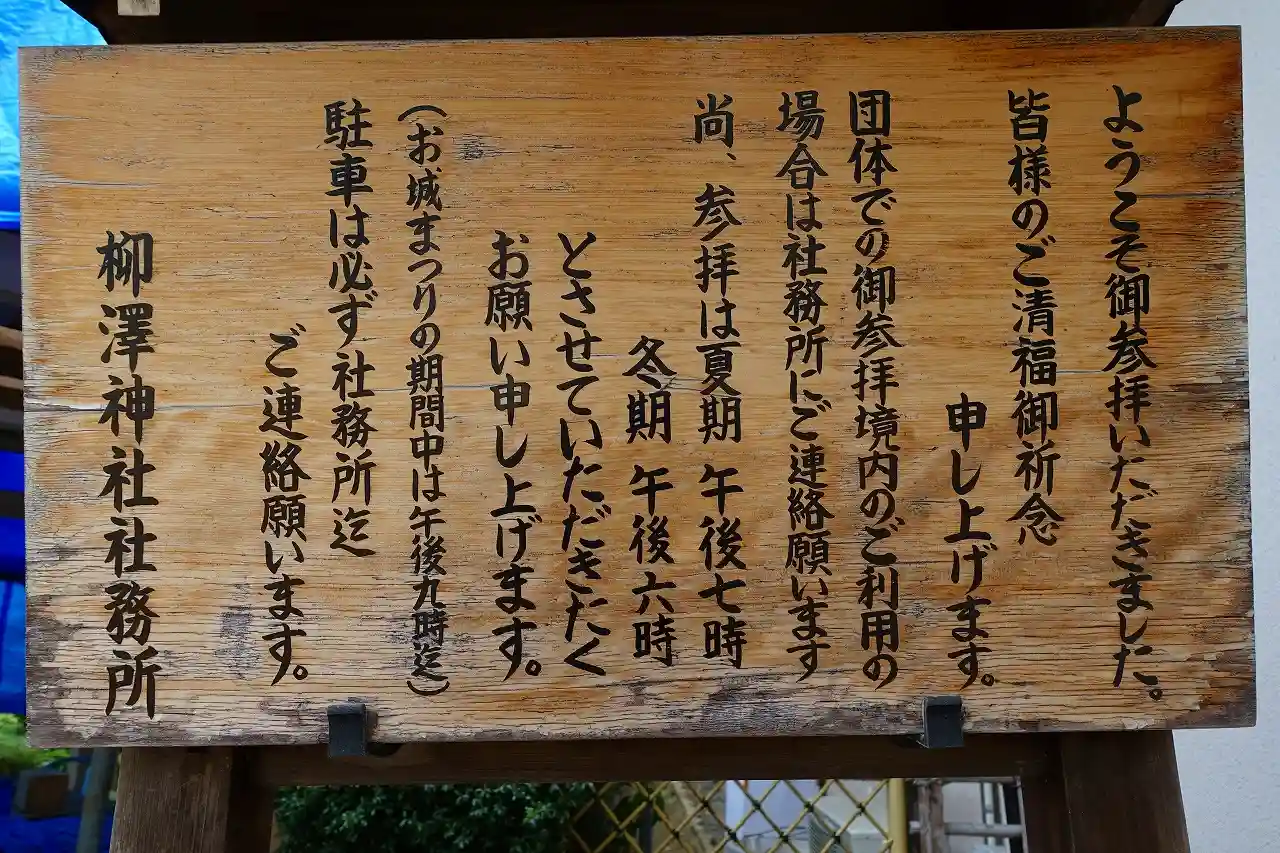 ようこそ御参拝いただきました。
皆様のご清福御祈念
申し上げます。
団体での御参拝境内のご利用の
場合は社務所にご連絡願います
尚、参拝は夏期 午後七時
冬期 午後六時
とさせていただきたく
お願い申し上げます。
（お城まつりの期間中は午後九時迄）
駐車は必ず社務所迄
ご連絡願います。
柳澤神社社務所